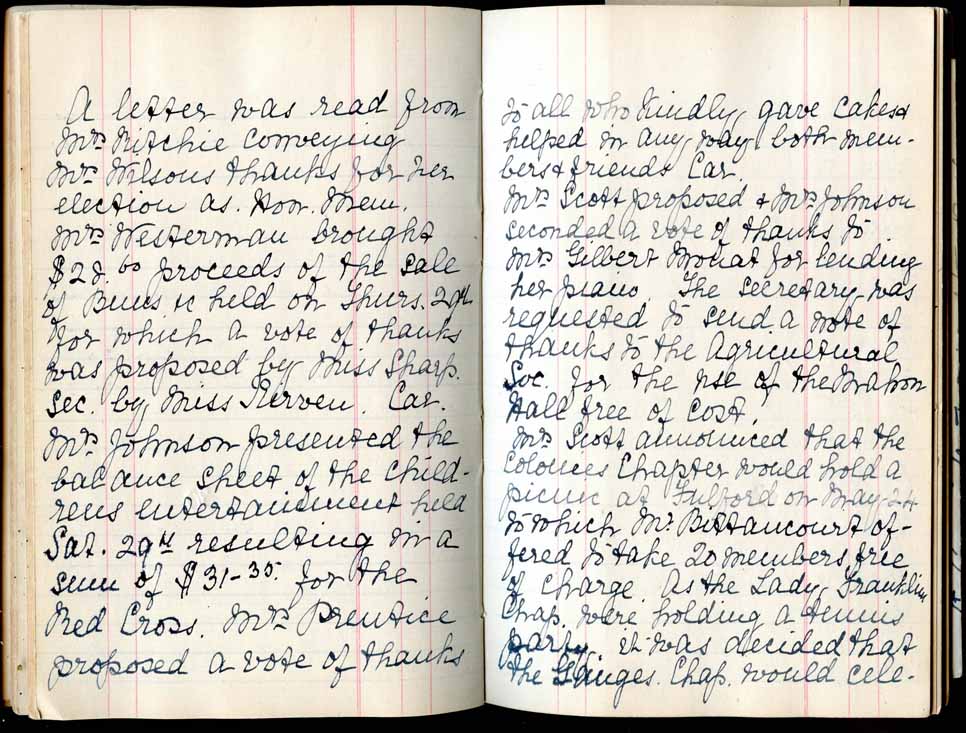 A letter was read from
Mrs Ritchie conveying
Mrs Wilsons thanks for her
election as. Hon. Mem.
Mrs Westerman brought
$28.00 proceeds of the sale
of Buns &c held on Thurs. 29th
for which a vote of thanks
was proposed by Miss Sharp.
sec. by Miss Nerven. Car.
Mrs Johnson presented the
balance sheet of the Child-
rens entertainment held
Sat. 29th resulting in a
sum of $31-35. for the
Red Cross. Mrs Prentice
proposed a vote of thanks
to all who kindly gave cakes &
helped in any way both mem-
bers & friends Car.
Mrs Scott proposed & Mrs Johnson
seconded a vote of thanks to
Mrs Gilbert Mouat for lending
her piano The secretary was
requested to send a note of
thanks to the Agricultural
Soc. for the use of the Mahon
Hall free of cost.
Mrs Scott announced that the
Colonies Chapter would hold a
picnic at Fulford on May 24
to which Mr. Bittancourt of-
fered to take 20 members free
of charge. As the Lady Franklin
Chap. were holding a tennis
party, it was decided that
the Ganges. Chap. would cele-